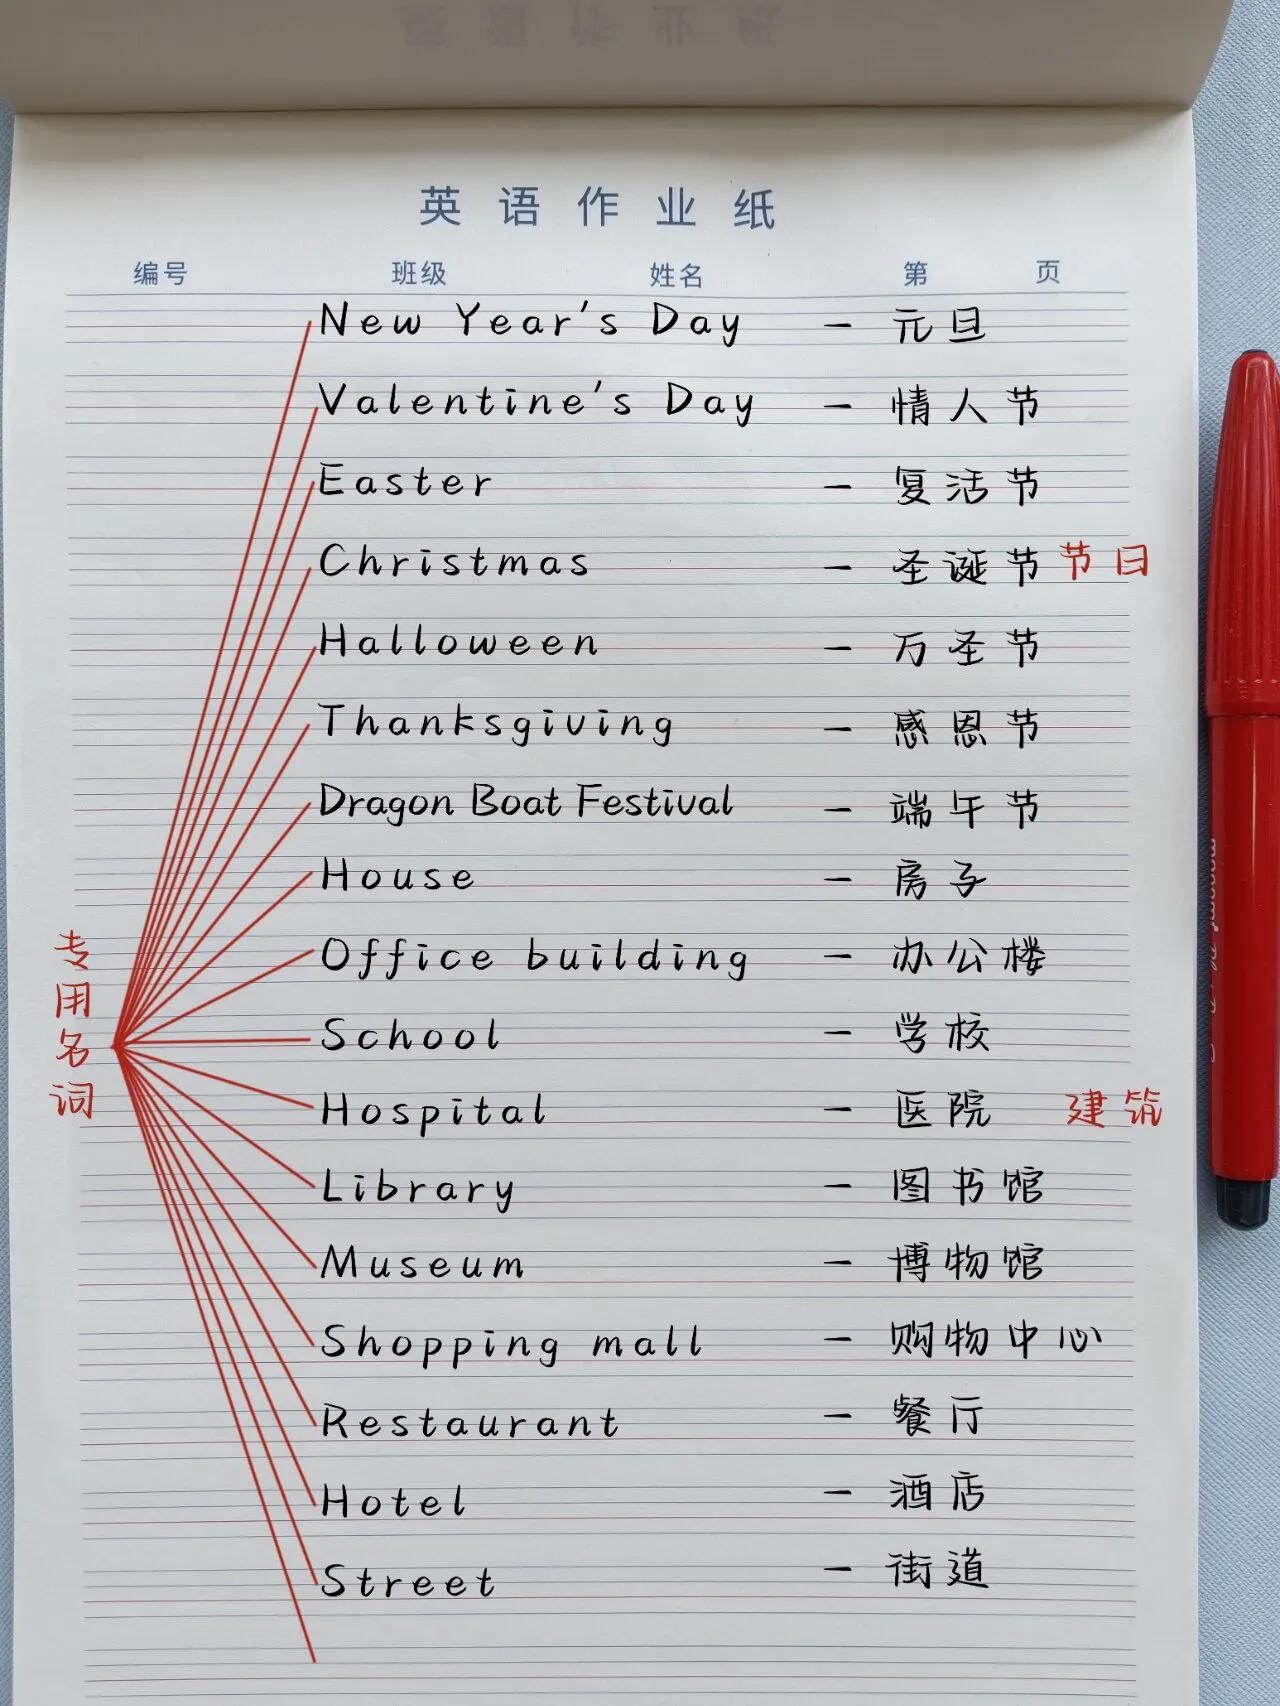 英语作业纸
编号 班级 姓名 第 页
New Year's Day — 元旦
Valentine's Day — 情人节
Easter — 复活节
Christmas — 圣诞节 节日
Halloween — 万圣节
Thanksgiving — 感恩节
Dragon Boat Festival — 端午节
House — 房子
Office building — 办公楼
School — 学校
Hospital — 医院 建筑
Library — 图书馆
Museum — 博物馆
Shopping mall — 购物中心
Restaurant — 餐厅
Hotel — 酒店
Street — 街道
专用名词